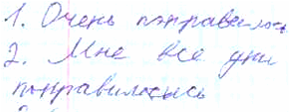 1. Очень понравилось
2. Мне все
понравилось